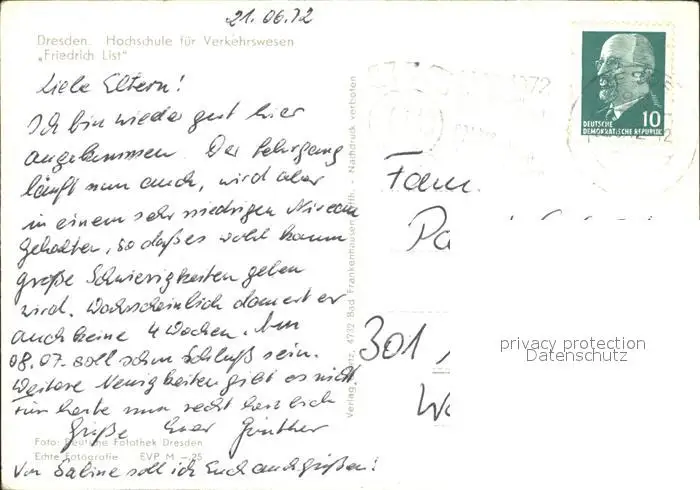 21.06.72
Dresden. Hochschule für Verkehrswesen
„Friedrich List"
Liebe Eltern!
Ich bin wieder gut hier
angekommen. Der Lehrgang
läuft nun auch, wird aber
in einem sehr niedrigen Niveau
gehalten, so daß es wohl kaum
große Schwierigkeiten geben
wird. Wahrscheinlich dauert er
auch keine 4 Wochen. Am
08.07. soll schon Schluß sein.
Weitere Neuigkeiten gibt es nicht
für heute nun recht herzlich
Grüße Euer Günther
Foto: Deutsche Fotothek Dresden
Echte Fotografie EVP M -25
Von Sabine soll ich Euch auch grüßen!
Verlag 4732 Bad Frankenhausen - Nachdruck verboten
10
DEUTSCHE
DEMOKRATISCHE REPUBLIK
Fam.
Pa
301
privacy protection
Datenschutz